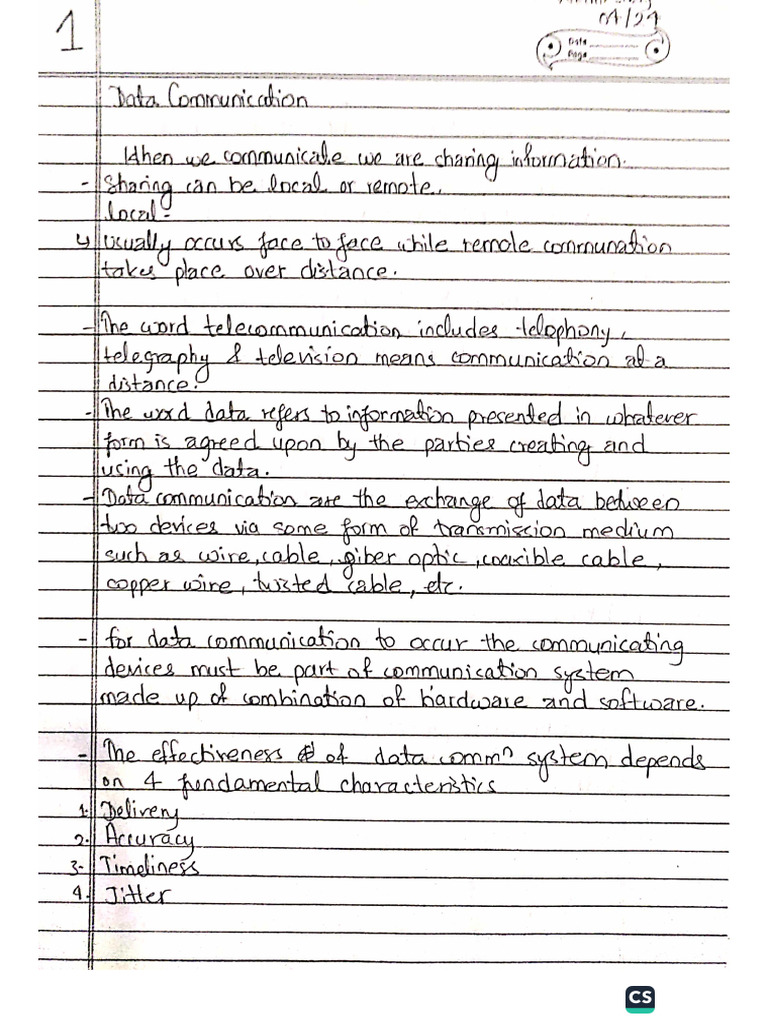 1
04/24
Date
Page
Data Communication
When we communicate we are sharing information.
- Sharing can be local or remote.
local -
↳ Usually occurs face to face while remote communation
takes place over distance.
- The word telecommunication includes telophony,
telegraphy & television means communication at a
distance.
- The word data refers to information presented in whatever
form is agreed upon by the parties creating and
using the data.
- Data communication are the exchange of data between
two devices via some form of transmission medium
such as wire, cable, fiber optic, coaxible cable,
copper wire, twisted cable, etc.
- for data communication to occur the communicating
devices must be part of communication system
made up of combination of hardware and software.
- The effectiveness of data commⁿ system depends
on 4 fundamental characteristics
1. Delivery
2. Accuracy
3. Timeliness
4. Jitter
CS